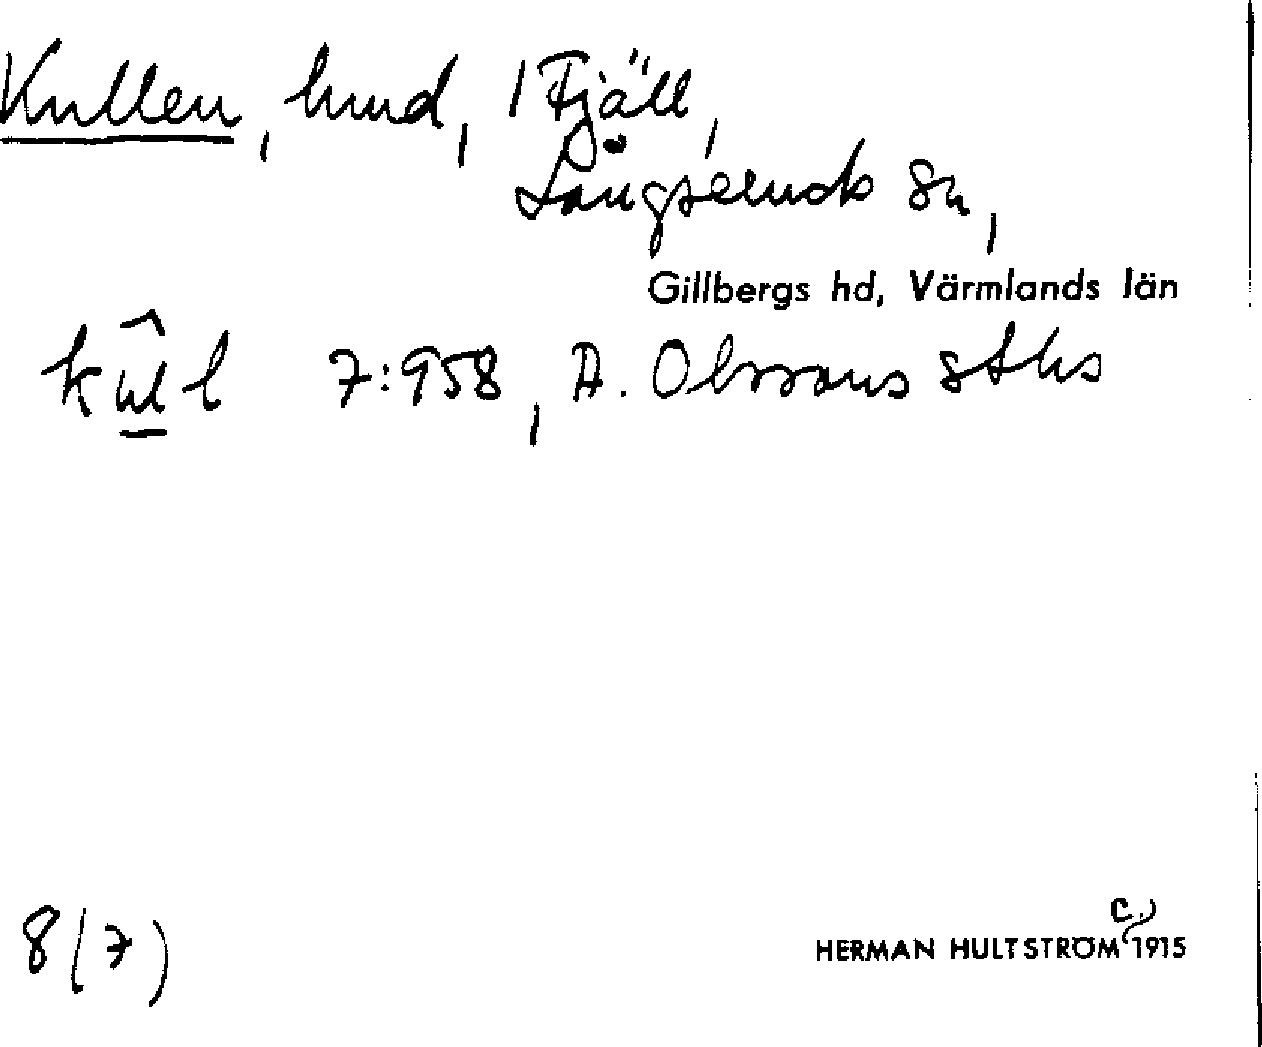 Kullen, hmd, 1 Fjäll,
Långseruds sn,
Gillbergs hd, Värmlands län
7:958, A. Olssons
8(7)
c.
HERMAN HULTSTRÖM 1915